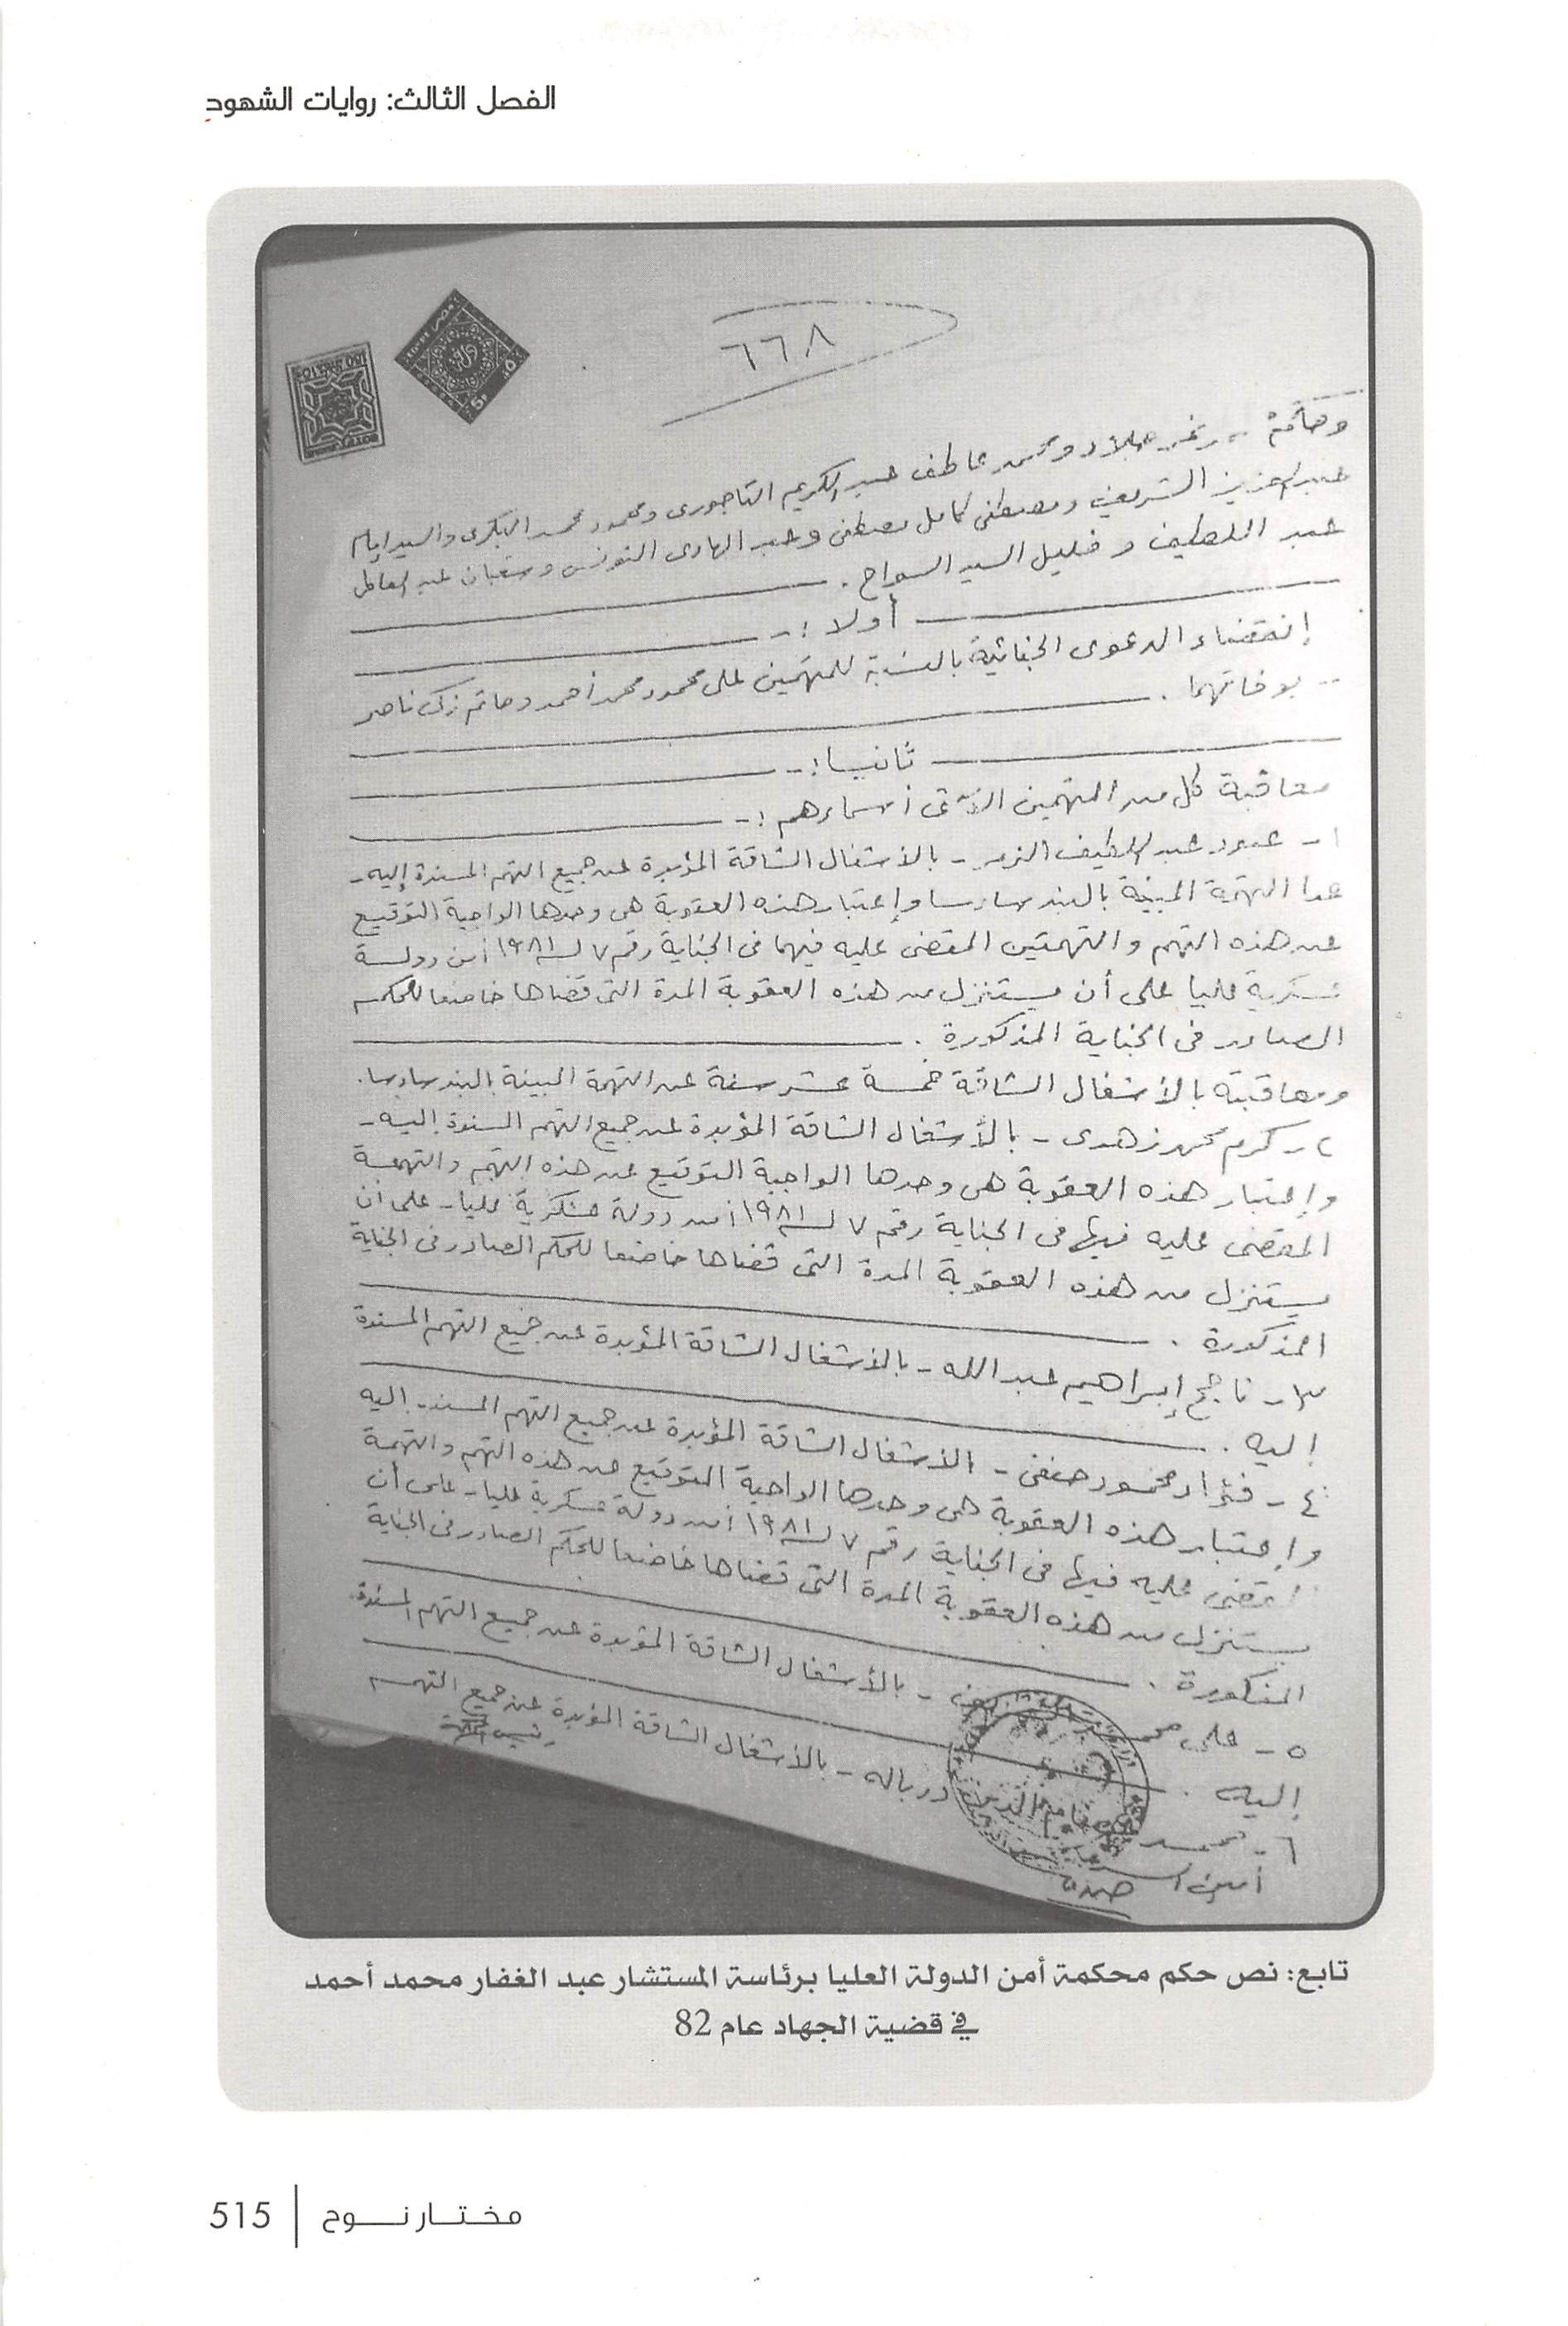 الفصل الثالث: روايات الشهود
٦٦٨
ومحمد عاطف عبد الكريم التاجورى ومحمود محمد البكرى والسيد إمام
عبد العزيز الشريف ومصطفى كامل مصطفى وعبد الهادى التونسى وشعبان عبد العاطى
عبد اللطيف و خليل السيد السواح .
أولا :-
إنقضاء الدعوى الجنائية بالنسبة للمتهمين على محمود محمد أحمد وحاتم زكى ناصر
بوفاتهما .
ثانيا :-
معاقبة كل من المتهمين الآتى أسماءهم :-
١- عبود عبد اللطيف الزمر - بالأشغال الشاقة المؤبدة عن جميع التهم المسندة إليه -
عدا التهمة المبينة بالبند سادسا وإعتبار هذه العقوبة هى وحدها الواجبة التوقيع
عن هذه التهم والتهمتين المقضى عليه فيهما فى الجناية رقم ٧ لسنة ١٩٨١ أمن دولة
عسكرية عليا على أن يستنزل من هذه العقوبة المدة التى قضاها خاضعا للحكم
الصادر فى الجناية المذكورة .
ومعاقبته بالأشغال الشاقة خمسة عشر سنة عن التهمة المبينة بالبند سادسا.
٢- كرم محمد زهدى - بالأشغال الشاقة المؤبدة عن جميع التهم المسندة إليه -
وإعتبار هذه العقوبة هى وحدها الواجبة التوقيع عن هذه التهم والتهمة
المقضى عليه فيها فى الجناية رقم ٧ لسنة ١٩٨١ أمن دولة عسكرية عليا - على أن
يستنزل من هذه العقوبة المدة التى قضاها خاضعا للحكم الصادر فى الجناية
المذكورة .
٣- ناجح إبراهيم عبد الله - بالأشغال الشاقة المؤبدة عن جميع التهم المسندة
إليه .
٤- فؤاد محمود حنفى - الأشغال الشاقة المؤبدة عن جميع التهم المسندة إليه
وإعتبار هذه العقوبة هى وحدها الواجبة التوقيع عن هذه التهم والتهمة
المقضى عليه فيها فى الجناية رقم ٧ لسنة ١٩٨١ أمن دولة عسكرية عليا - على أن
يستنزل من هذه العقوبة المدة التى قضاها خاضعا للحكم الصادر فى الجناية
المذكورة .
٥- على محمد - بالأشغال الشاقة المؤبدة عن جميع التهم المسندة
إليه .
٦- محمد عصام الدين درباله - بالأشغال الشاقة المؤبدة عن جميع التهم
أمين السر
رئيس المحكمة
تابع: نص حكم محكمة أمن الدولة العليا برئاسة المستشار عبد الغفار محمد أحمد
في قضية الجهاد عام 82
مختار نوح | 515